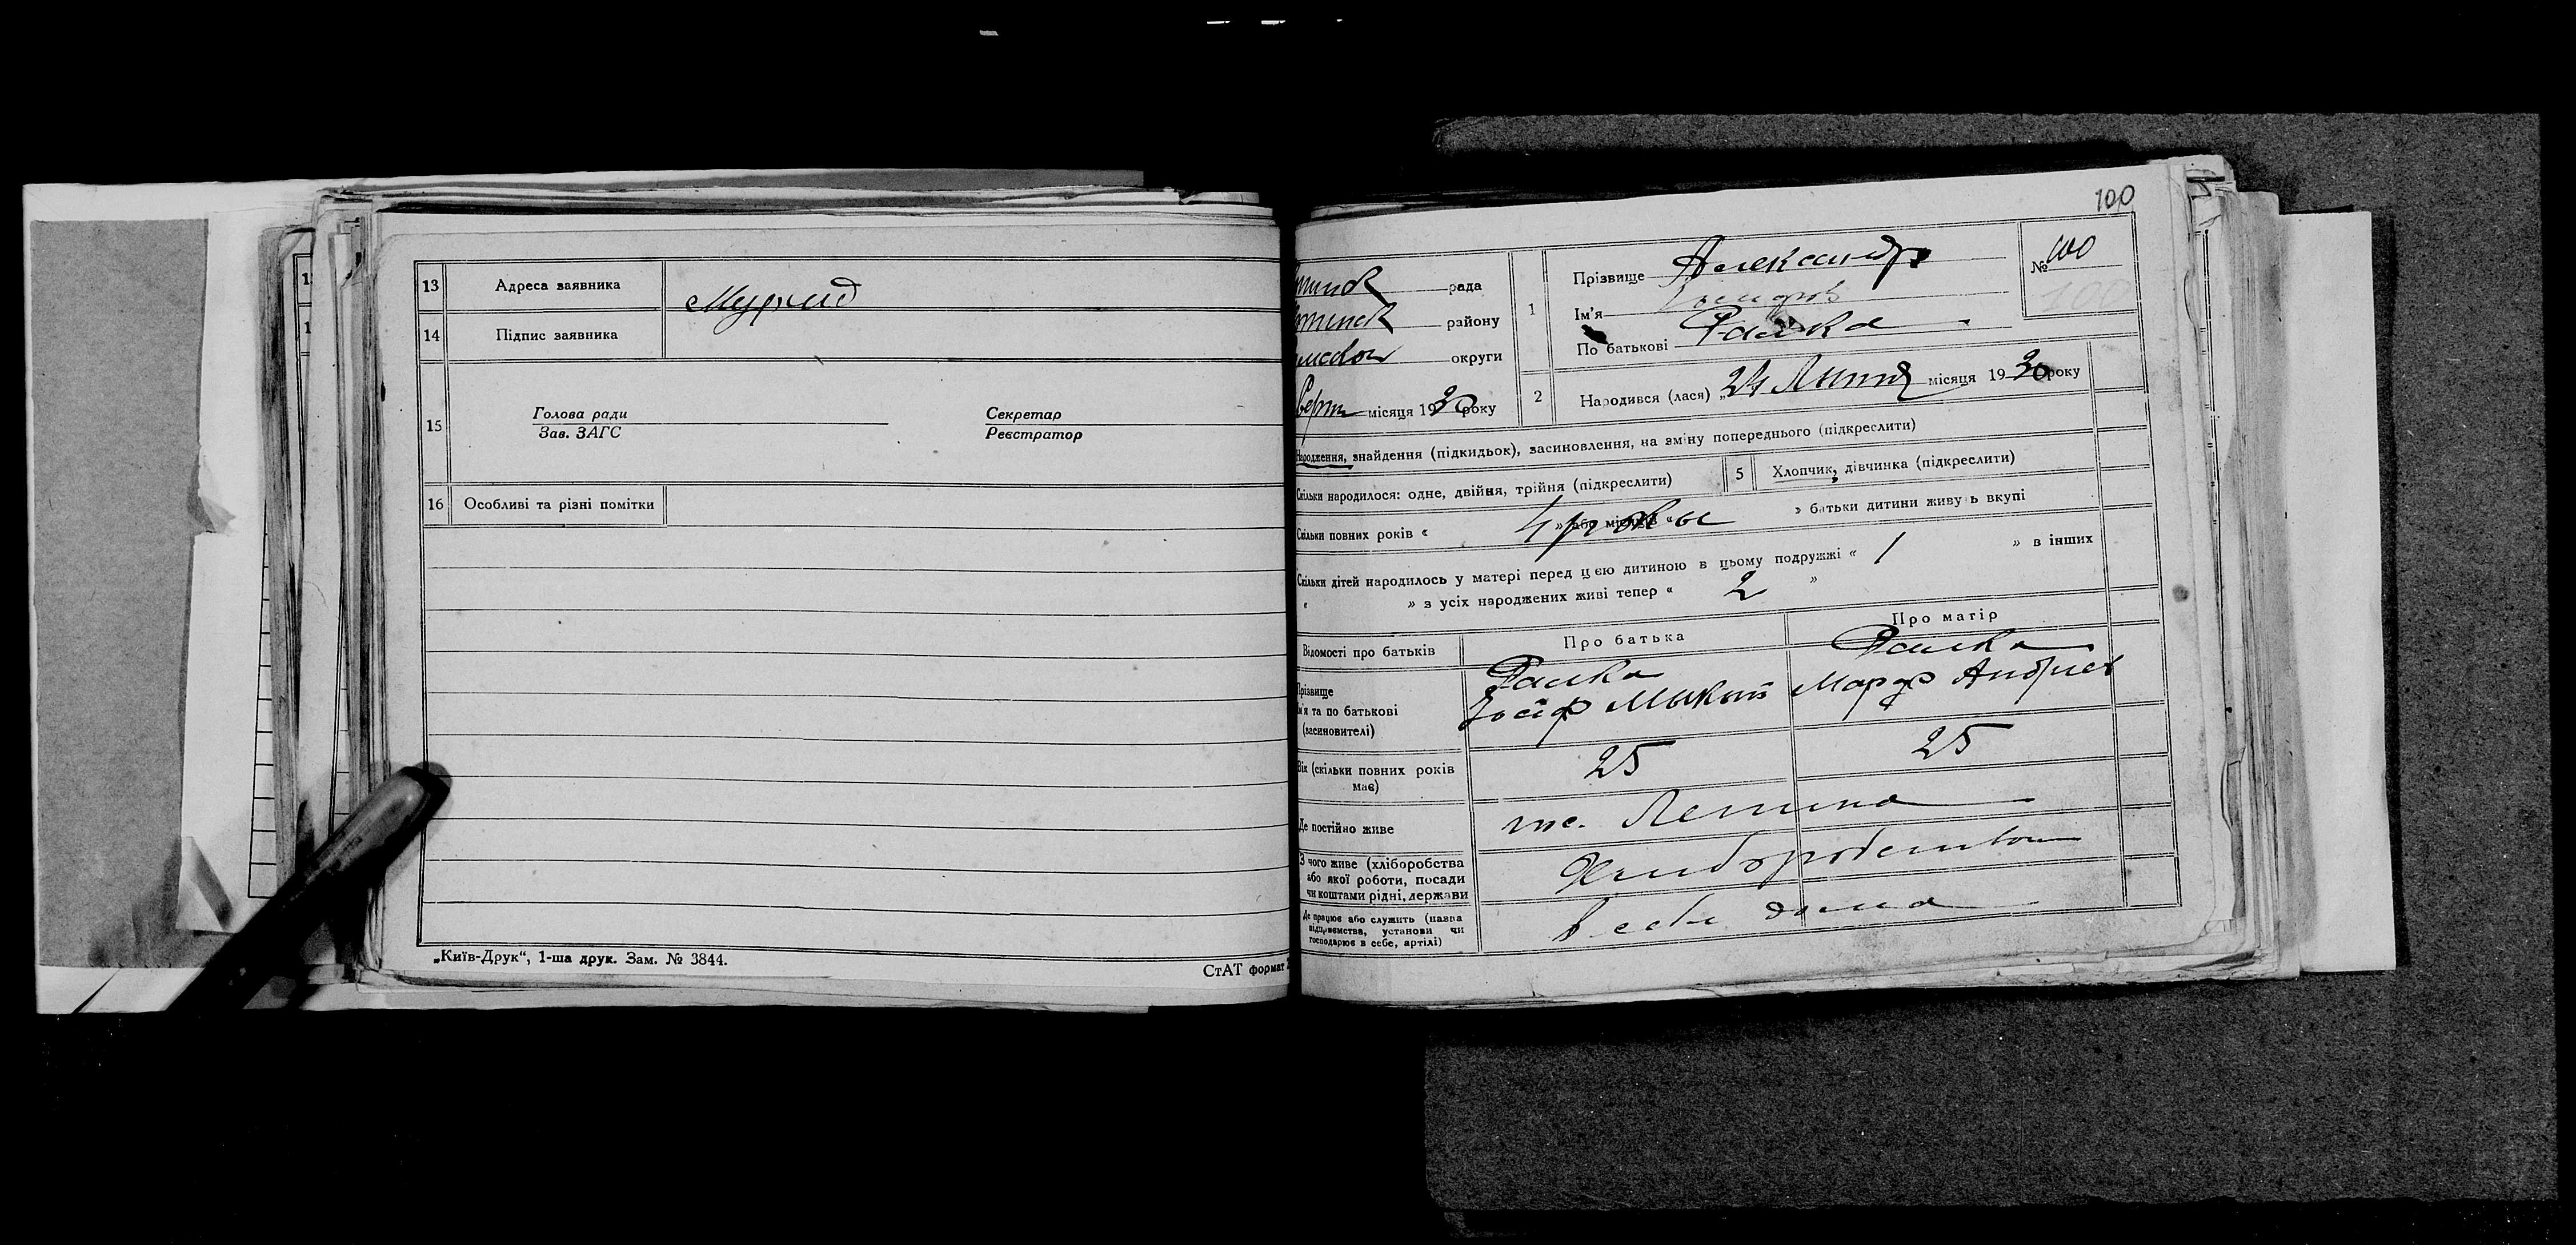 13 Адреса заявника
14 Підпис заявника
15 Голова ради Секретар
Зав. ЗАГС Реєстратор
16 Особливі та різні помітки
„Київ-Друк“, 1-ша друк. Зам. № 3844.
СтАТ формат
100
рада
району
округи
місяця 1930 року
1 Прізвище Александр
Ім'я
По батькові
№ 100
100
2 Народився (лася) „24 Липня місяця 1930 року
Народження, знайдення (підкидьок), засиновлення, на зміну попереднього (підкреслити)
Скільки народилося: одне, двійня, трійня (підкреслити)
5 Хлопчик, дівчинка (підкреслити)
Скільки повних років « 4 рокы » або місяців « » батьки дитини живуть вкупі
Скільки дітей народилось у матері перед цією дитиною в цьому подружжі « 1 » в інших
« » з усіх народжених живі тепер « 2 »
Відомості про батьків Про батька Про матір
Прізвище
Ім'я та по батькові Йосиф Мыкит Марф Андриев
(засиновителі)
Вік (скільки повних років має) 25 25
Де постійно живе
З чого живе (хліборобства
або якої роботи, посади
чи коштами рідні, держави Хлиборобством
Де працює або служить (назва
підприємства, установи чи
господарює в себе, артілі) в себе дома